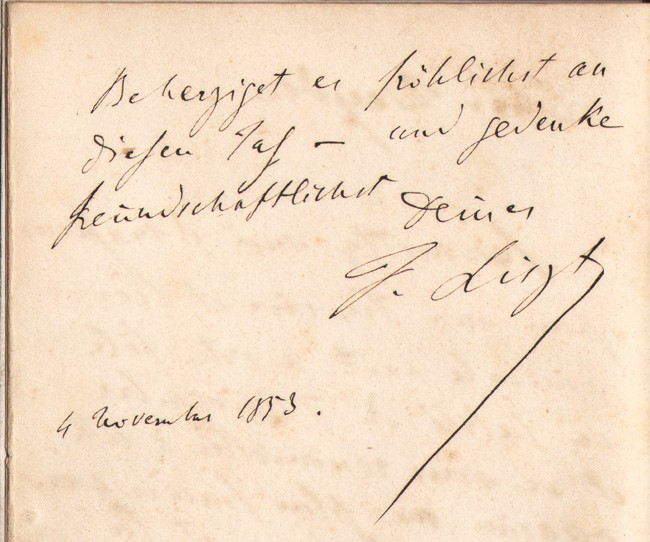 Beherziget es fröhlichst an
diesen Tag – und gedenke
freundschaftlichst Deines
F. Liszt
4 November 1853.